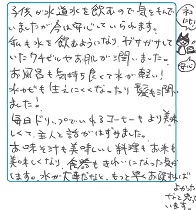 子供が水道水を飲むので気をもんで
いましたが今は安心していられます。
私も水を飲むようになり、ガサガサして
いたクチビルやお肌が潤いました。
お風呂も気持ち良くて水が軽い!
水カビも生えにくくなったり 髪も潤い
ました!
毎日ドリップでいれるコーヒーもより美味
しくて、主人と話がはずみました。
お味そ汁も美味しいし料理もお米も
美味しくなり、食器もきれいになった気が
します。水が大事だなと、もっと早くお飲めば
よかった
なと思って
います。